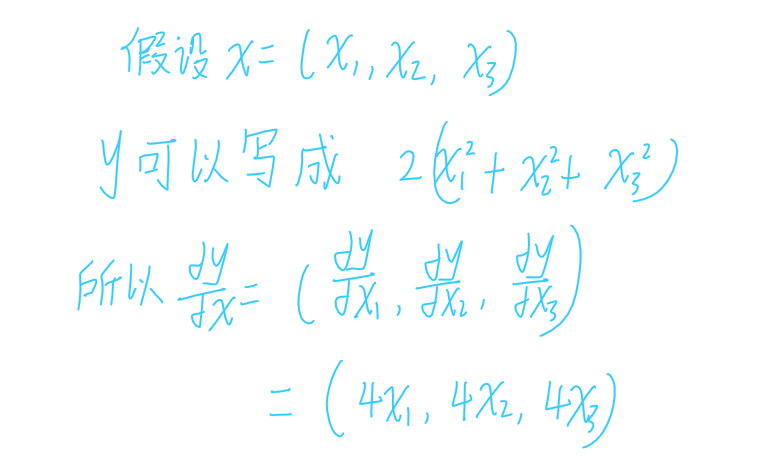 假设 x = (x₁, x₂, x₃)
y可以写成 2(x₁² + x₂² + x₃²)
所以 dy/dx = (dy/dx₁, dy/dx₂, dy/dx₃)
= (4x₁, 4x₂, 4x₃)